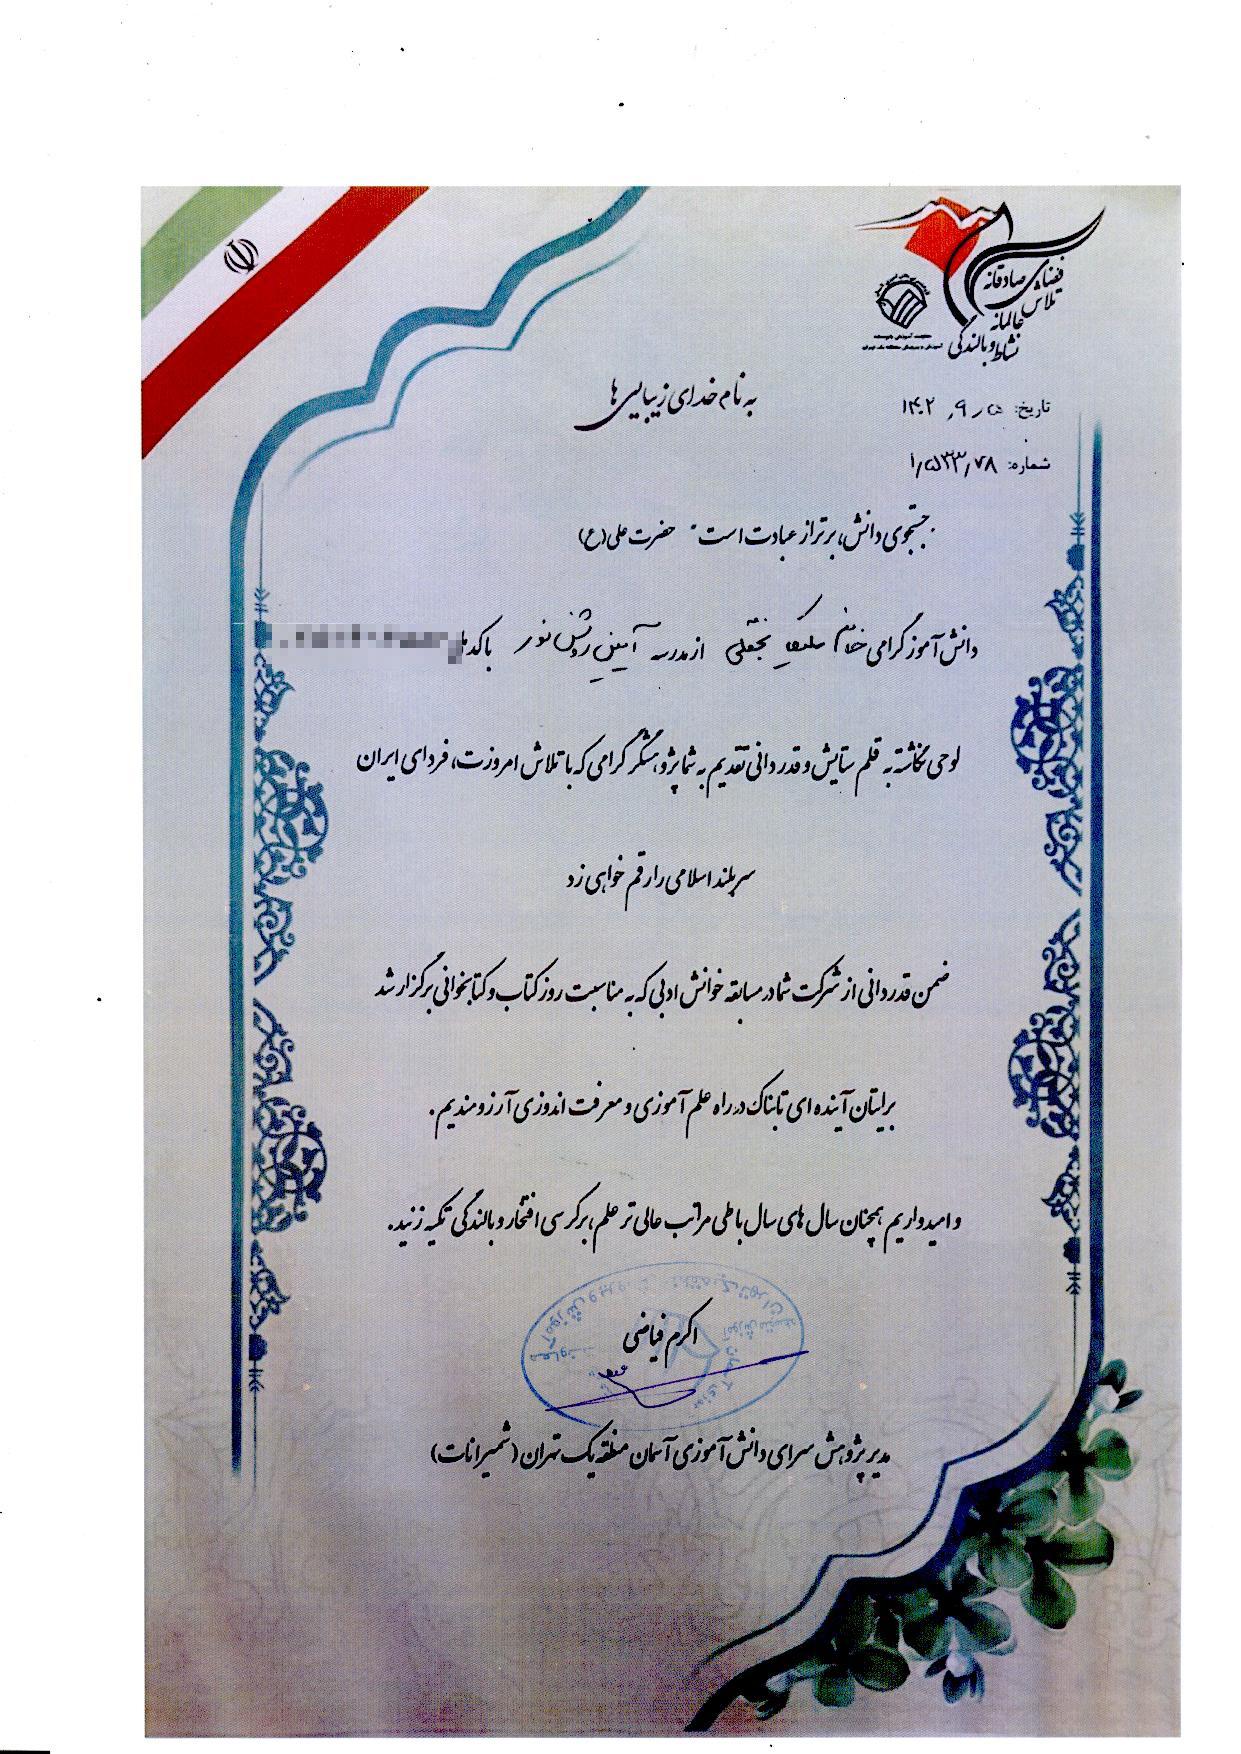 فضای صادقانه
تلاش عالمانه
نشاط و بالندگی
به نام خدای زیبایی ها
تاریخ: ۱۴۰۲/۹/۵
شماره: ۱/۵۳۳/۷۸
جستجوی دانش، برتر از عبادت است حضرت علی (ع)
دانش آموز گرامی خانم نجفقلی از مدرسه آیین روشن نور با کد ملی
لوحی نگاشته به قلم ستایش و قدردانی تقدیم به شما پژوهشگر گرامی که با تلاش امروزت، فردای ایران
سربلند اسلامی را رقم خواهی زد
ضمن قدردانی از شرکت شما در مسابقه خوانش ادبی که به مناسبت روز کتاب و کتابخوانی برگزار شد
برایتان آینده ای تابناک در راه علم آموزی و معرفت اندوزی آرزومندیم.
و امیدواریم همچنان سال های سال با طی مراتب عالی تر علم، بر کرسی افتخار و بالندگی تکیه زنید.
اکرم فیاضی
مدیر پژوهش سرای دانش آموزی آسمان منطقه یک تهران (شمیرانات)